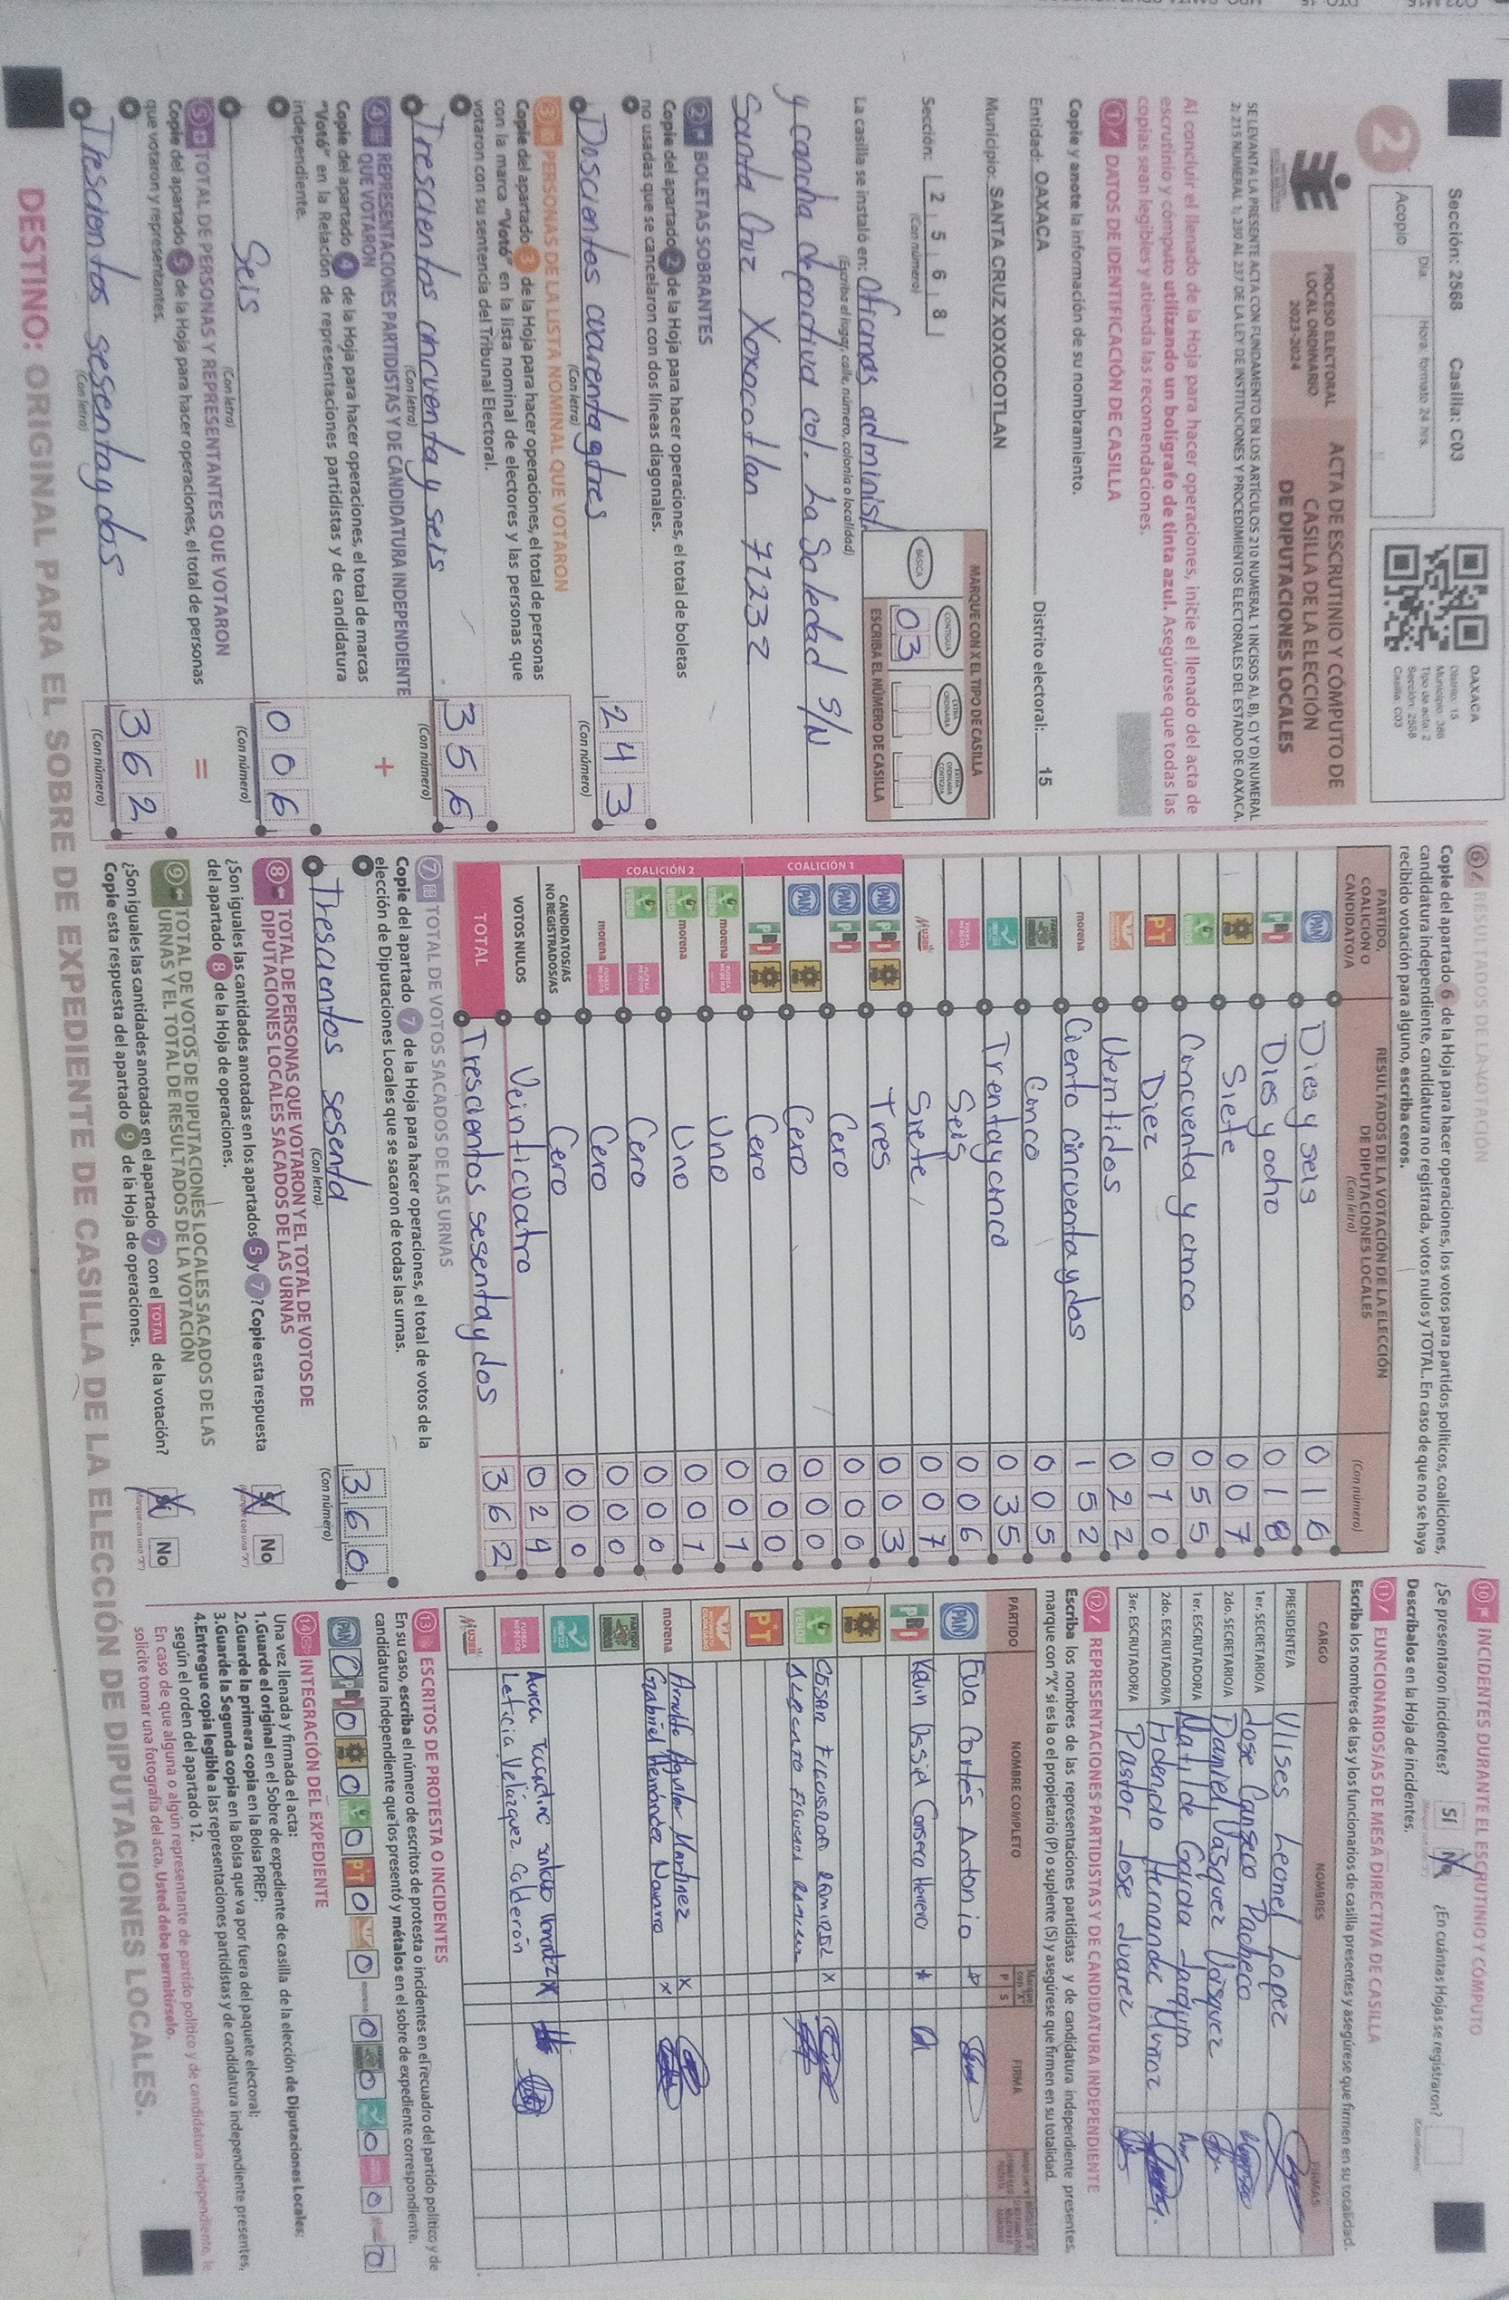 Sección: 2568 Casilla: C03
Acopio
Día:
Hora: formato 24 hrs.
OAXACA
Distrito: 15
Municipio: 386
Tipo de acta: 2
Sección: 2568
Casilla: C03
2
PROCESO ELECTORAL
LOCAL ORDINARIO
2023-2024
ACTA DE ESCRUTINIO Y CÓMPUTO DE
CASILLA DE LA ELECCIÓN
DE DIPUTACIONES LOCALES
SE LEVANTA LA PRESENTE ACTA CON FUNDAMENTO EN LOS ARTÍCULOS 210 NUMERAL 1 INCISOS A), B), C) Y D) NUMERAL
2; 215 NUMERAL 1; 230 AL 237 DE LA LEY DE INSTITUCIONES Y PROCEDIMIENTOS ELECTORALES DEL ESTADO DE OAXACA.
Al concluir el llenado de la Hoja para hacer operaciones, inicie el llenado del acta de
escrutinio y cómputo utilizando un bolígrafo de tinta azul. Asegúrese que todas las
copias sean legibles y atienda las recomendaciones.
1 DATOS DE IDENTIFICACIÓN DE CASILLA
Copie y anote la información de su nombramiento.
Entidad: OAXACA Distrito electoral: 15
Municipio: SANTA CRUZ XOXOCOTLAN
Sección: 2 5 6 8
(Con número)
MARQUE CON X EL TIPO DE CASILLA
BÁSICA CONTIGUA EXTRAORDINARIA EXTRAORDINARIA CONTIGUA
03
ESCRIBA EL NÚMERO DE CASILLA
La casilla se instaló en: Oficinas administ
(Escriba el lugar, calle, número, colonia o localidad)
y cancha deportiva col. La Soledad S/N
Santa Cruz Xoxocotlan 71232
2 BOLETAS SOBRANTES
Copie del apartado 2 de la Hoja para hacer operaciones, el total de boletas
no usadas que se cancelaron con dos líneas diagonales.
Doscientos cuarenta y tres 243
(Con letra) (Con número)
3 PERSONAS DE LA LISTA NOMINAL QUE VOTARON
Copie del apartado 3 de la Hoja para hacer operaciones, el total de personas
con la marca "Votó" en la lista nominal de electores y las personas que
votaron con su sentencia del Tribunal Electoral.
Trescientos cincuenta y seis 356
(Con letra) (Con número)
4 REPRESENTACIONES PARTIDISTAS Y DE CANDIDATURA INDEPENDIENTE
QUE VOTARON
+
Copie del apartado 4 de la Hoja para hacer operaciones, el total de marcas
"Votó" en la Relación de representaciones partidistas y de candidatura
independiente.
Seis 006
(Con letra) (Con número)
5 TOTAL DE PERSONAS Y REPRESENTANTES QUE VOTARON
=
Copie del apartado 5 de la Hoja para hacer operaciones, el total de personas
que votaron y representantes.
Trescientos sesenta y dos 362
(Con letra) (Con número)
6 RESULTADOS DE LA VOTACIÓN
Copie del apartado 6 de la Hoja para hacer operaciones, los votos para partidos políticos, coaliciones,
candidatura independiente, candidatura no registrada, votos nulos y TOTAL. En caso de que no se haya
recibido votación para alguno, escriba ceros.
PARTIDO,
COALICIÓN O
CANDIDATO/A
RESULTADOS DE LA VOTACIÓN DE LA ELECCIÓN
DE DIPUTACIONES LOCALES
(Con letra)
(Con número)
PAN Dies y seis 016
PRI Dies y ocho 018
Siete 007
VERDE Cincuenta y cinco 055
PT Diez 010
Ventidos 022
morena Ciento cincuenta y dos 152
Cinco 005
Trenta y cinco 035
Seis 006
Mujer Siete 007
COALICIÓN 1
PAN PRI Tres 003
PAN PRI Cero 000
PAN Cero 000
PRI Cero 000
COALICIÓN 2
VERDE morena Uno 001
VERDE morena Uno 001
VERDE Cero 000
morena Cero 000
CANDIDATOS/AS
NO REGISTRADOS/AS Cero 000
VOTOS NULOS Veinticuatro 024
TOTAL Trescientos sesenta y dos 362
7 TOTAL DE VOTOS SACADOS DE LAS URNAS
Copie del apartado 7 de la Hoja para hacer operaciones, el total de votos de la
elección de Diputaciones Locales que se sacaron de todas las urnas.
Trescientos sesenta 360
(Con letra) (Con número)
8 TOTAL DE PERSONAS QUE VOTARON Y EL TOTAL DE VOTOS DE
DIPUTACIONES LOCALES SACADOS DE LAS URNAS
¿Son iguales las cantidades anotadas en los apartados 5 y 7? Copie esta respuesta
del apartado 8 de la Hoja de operaciones.
Sí No
9 TOTAL DE VOTOS DE DIPUTACIONES LOCALES SACADOS DE LAS
URNAS Y EL TOTAL DE RESULTADOS DE LA VOTACIÓN
¿Son iguales las cantidades anotadas en el apartado 7 con el TOTAL de la votación?
Copie esta respuesta del apartado 9 de la Hoja de operaciones.
Sí No
10 INCIDENTES DURANTE EL ESCRUTINIO Y CÓMPUTO
¿Se presentaron incidentes? Sí No ¿En cuántas Hojas se registraron?
Descríbalos en la Hoja de incidentes.
11 FUNCIONARIOS/AS DE MESA DIRECTIVA DE CASILLA
Escriba los nombres de las y los funcionarios de casilla presentes y asegúrese que firmen en su totalidad.
CARGO NOMBRES FIRMAS
PRESIDENTE/A Ulises Leonel Lopez
1er. SECRETARIO/A Jose Canseco Pacheco
2do. SECRETARIO/A Daniel Vasquez Vasquez
1er. ESCRUTADOR/A Matilde Garcia Jarquin
2do. ESCRUTADOR/A Fidencio Hernandez Muñoz
3er. ESCRUTADOR/A Pastor Jose Juarez
12 REPRESENTACIONES PARTIDISTAS Y DE CANDIDATURA INDEPENDIENTE
Escriba los nombres de las representaciones partidistas y de candidatura independiente presentes,
marque con "X" si es la o el propietario (P) o suplente (S) y asegúrese que firmen en su totalidad.
PARTIDO NOMBRE COMPLETO P S FIRMA
PAN Eva Cortés Antonio
PRI Kevin Canseco Herrera
VERDE Cesar Figueroa Ramirez X
Figueroa Ramirez
PT
morena Arnulfo Aguilar Martinez X
Gabriel Hernández Navarro X
Leticia Velázquez Calderón
Mujer
13 ESCRITOS DE PROTESTA O INCIDENTES
En su caso, escriba el número de escritos de protesta o incidentes en el recuadro del partido político y de
candidatura independiente que los presentó y métalos en el sobre de expediente correspondiente.
PAN 0 PRI 0 0 0 PT 0 0 0 0 0 0 0
14 INTEGRACIÓN DEL EXPEDIENTE
Una vez llenada y firmada el acta:
1.Guarde el original en el Sobre de expediente de casilla de la elección de Diputaciones Locales;
2.Guarde la primera copia en la Bolsa PREP;
3.Guarde la Segunda copia en la Bolsa que va por fuera del paquete electoral;
4.Entregue copia legible a las representaciones partidistas y de candidatura independiente presentes,
según el orden del apartado 12.
En caso de que alguna o algún representante de partido político y de candidatura independiente, le
solicite tomar una fotografía del acta, Usted debe permitírselo.
DESTINO: ORIGINAL PARA EL SOBRE DE EXPEDIENTE DE CASILLA DE LA ELECCIÓN DE DIPUTACIONES LOCALES.